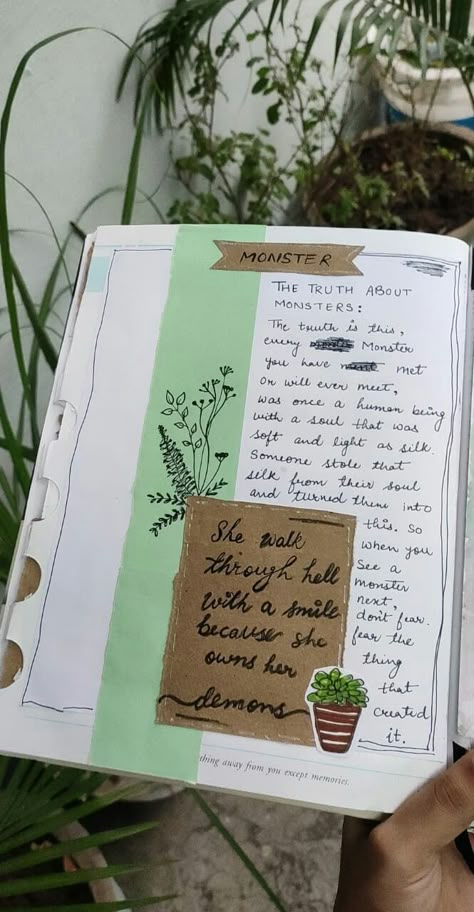 MONSTER
THE TRUTH ABOUT
MONSTERS:
The truth is this,
every Monster
you have met
or will ever meet,
was once a human being
with a soul that was
soft and light as silk.
Someone stole that
silk from their soul
and turned them into
this. So
when you
see a
monster
next,
don't fear.
fear the
thing
that
created
it.
She walk
through hell
with a smile
because she
owns her
demons
thing away from you except memories.